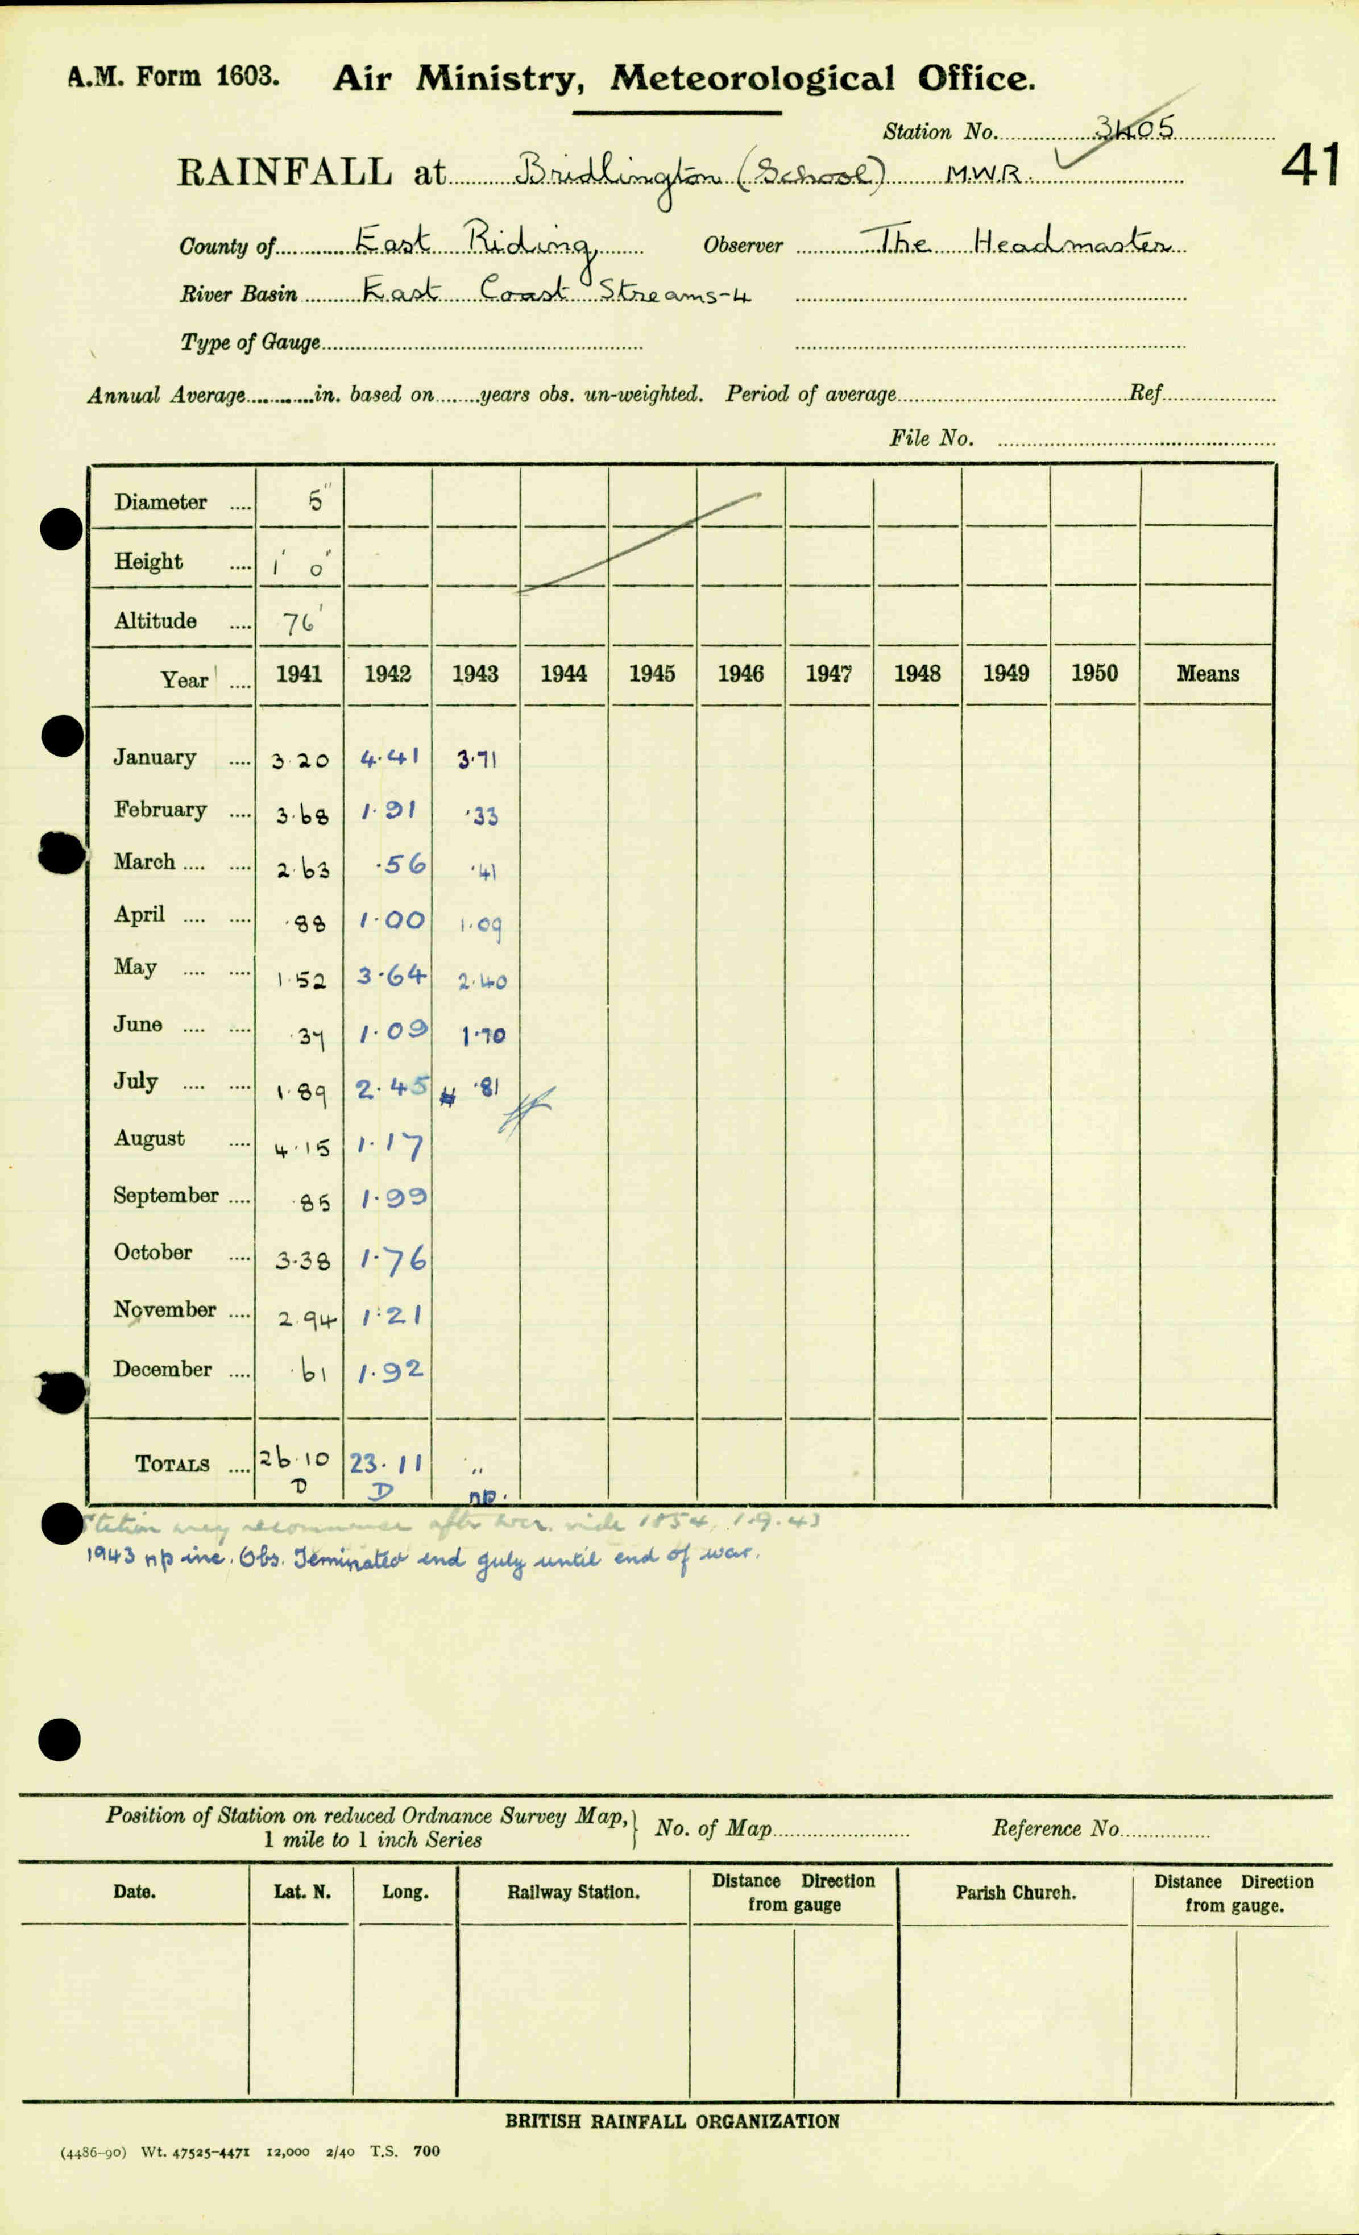 A.M. Form 1603. Air Ministry, Meteorological Office.
Station No. 3405
RAINFALL at Bridlington (School) M.W.R. 41
County of East Riding Observer The Headmaster
River Basin East Coast Streams-4
Type of Gauge
Annual Average in. based on years obs. un-weighted. Period of average Ref.
File No.
Diameter .... 5"
Height .... 1' 0"
Altitude .... 76'
Year .... 1941 1942 1943 1944 1945 1946 1947 1948 1949 1950 Means
January .... 3.20 4.41 3.71
February .... 3.68 1.91 .33
March .... .... 2.63 .56 .41
April .... .... .88 1.00 1.09
May .... .... 1.52 3.64 2.40
June .... .... .37 1.09 1.70
July .... .... 1.89 2.45 # .81
August .... 4.15 1.17
September .... .85 1.99
October .... 3.38 1.76
November .... 2.94 1.21
December .... .61 1.92
TOTALS .... 26.10 23.11 ..
D D np.
Station may recommence after war. vide 1854, 1.9.43
1943 np inc. Obs. Teminated end July until end of war.
Position of Station on reduced Ordnance Survey Map, } No. of Map Reference No.
1 mile to 1 inch Series
Date. Lat. N. Long. Railway Station. Distance Direction from gauge Parish Church. Distance Direction from gauge.
BRITISH RAINFALL ORGANIZATION
(4486-90) Wt. 47525-4471 12,000 2/40 T.S. 700